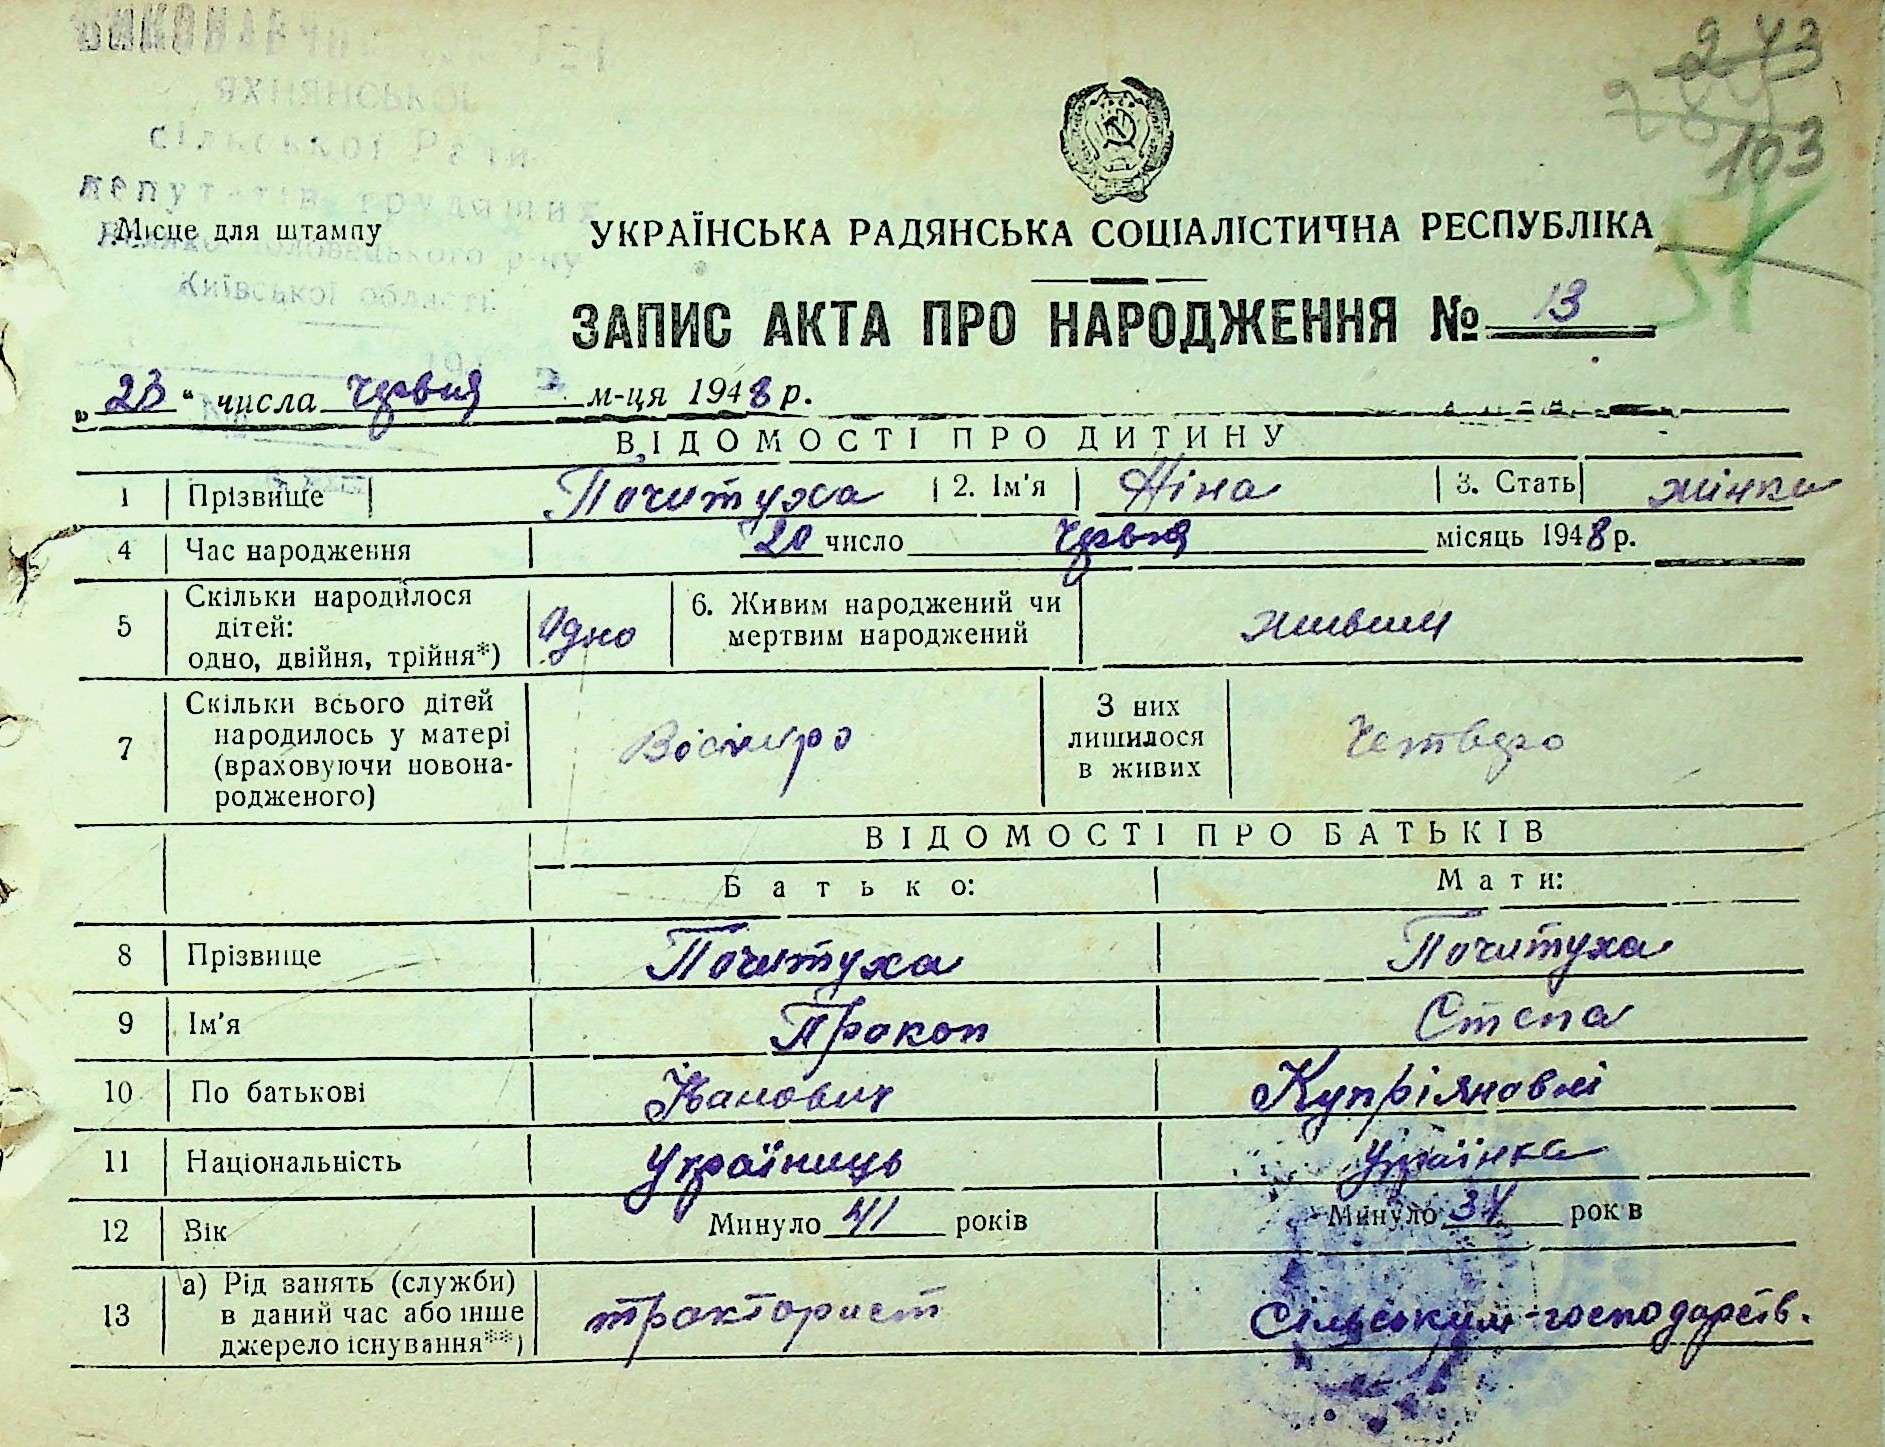 ЯХНЯНСЬКОЇ
сільської Ради
депутатів трудящих
Київської області
243
103
Місце для штампу
УКРАЇНСЬКА РАДЯНСЬКА СОЦІАЛІСТИЧНА РЕСПУБЛІКА
51
ЗАПИС АКТА ПРО НАРОДЖЕННЯ № 13
„23“ числа червня м-ця 1948 р.
ВІДОМОСТІ ПРО ДИТИНУ
1 Прізвище Почитуха 2. Ім'я Ніна 3. Стать жінка
4 Час народження 20 число червня місяць 1948 р.
5 Скільки народилося дітей: одно, двійня, трійня*) Одно 6. Живим народжений чи мертвим народжений живим
7 Скільки всього дітей народилось у матері (враховуючи новонародженого) Восьмеро З них лишилося в живих Четверо
ВІДОМОСТІ ПРО БАТЬКІВ
Батько: Мати:
8 Прізвище Почитуха Почитуха
9 Ім'я Прокоп Степа
10 По батькові Іванович Купріяновні
11 Національність Українець Українка
12 Вік Минуло 41 років Минуло 34 рок в
13 а) Рід занять (служби) в даний час або інше джерело існування**) тракторист Сільським-господарств.